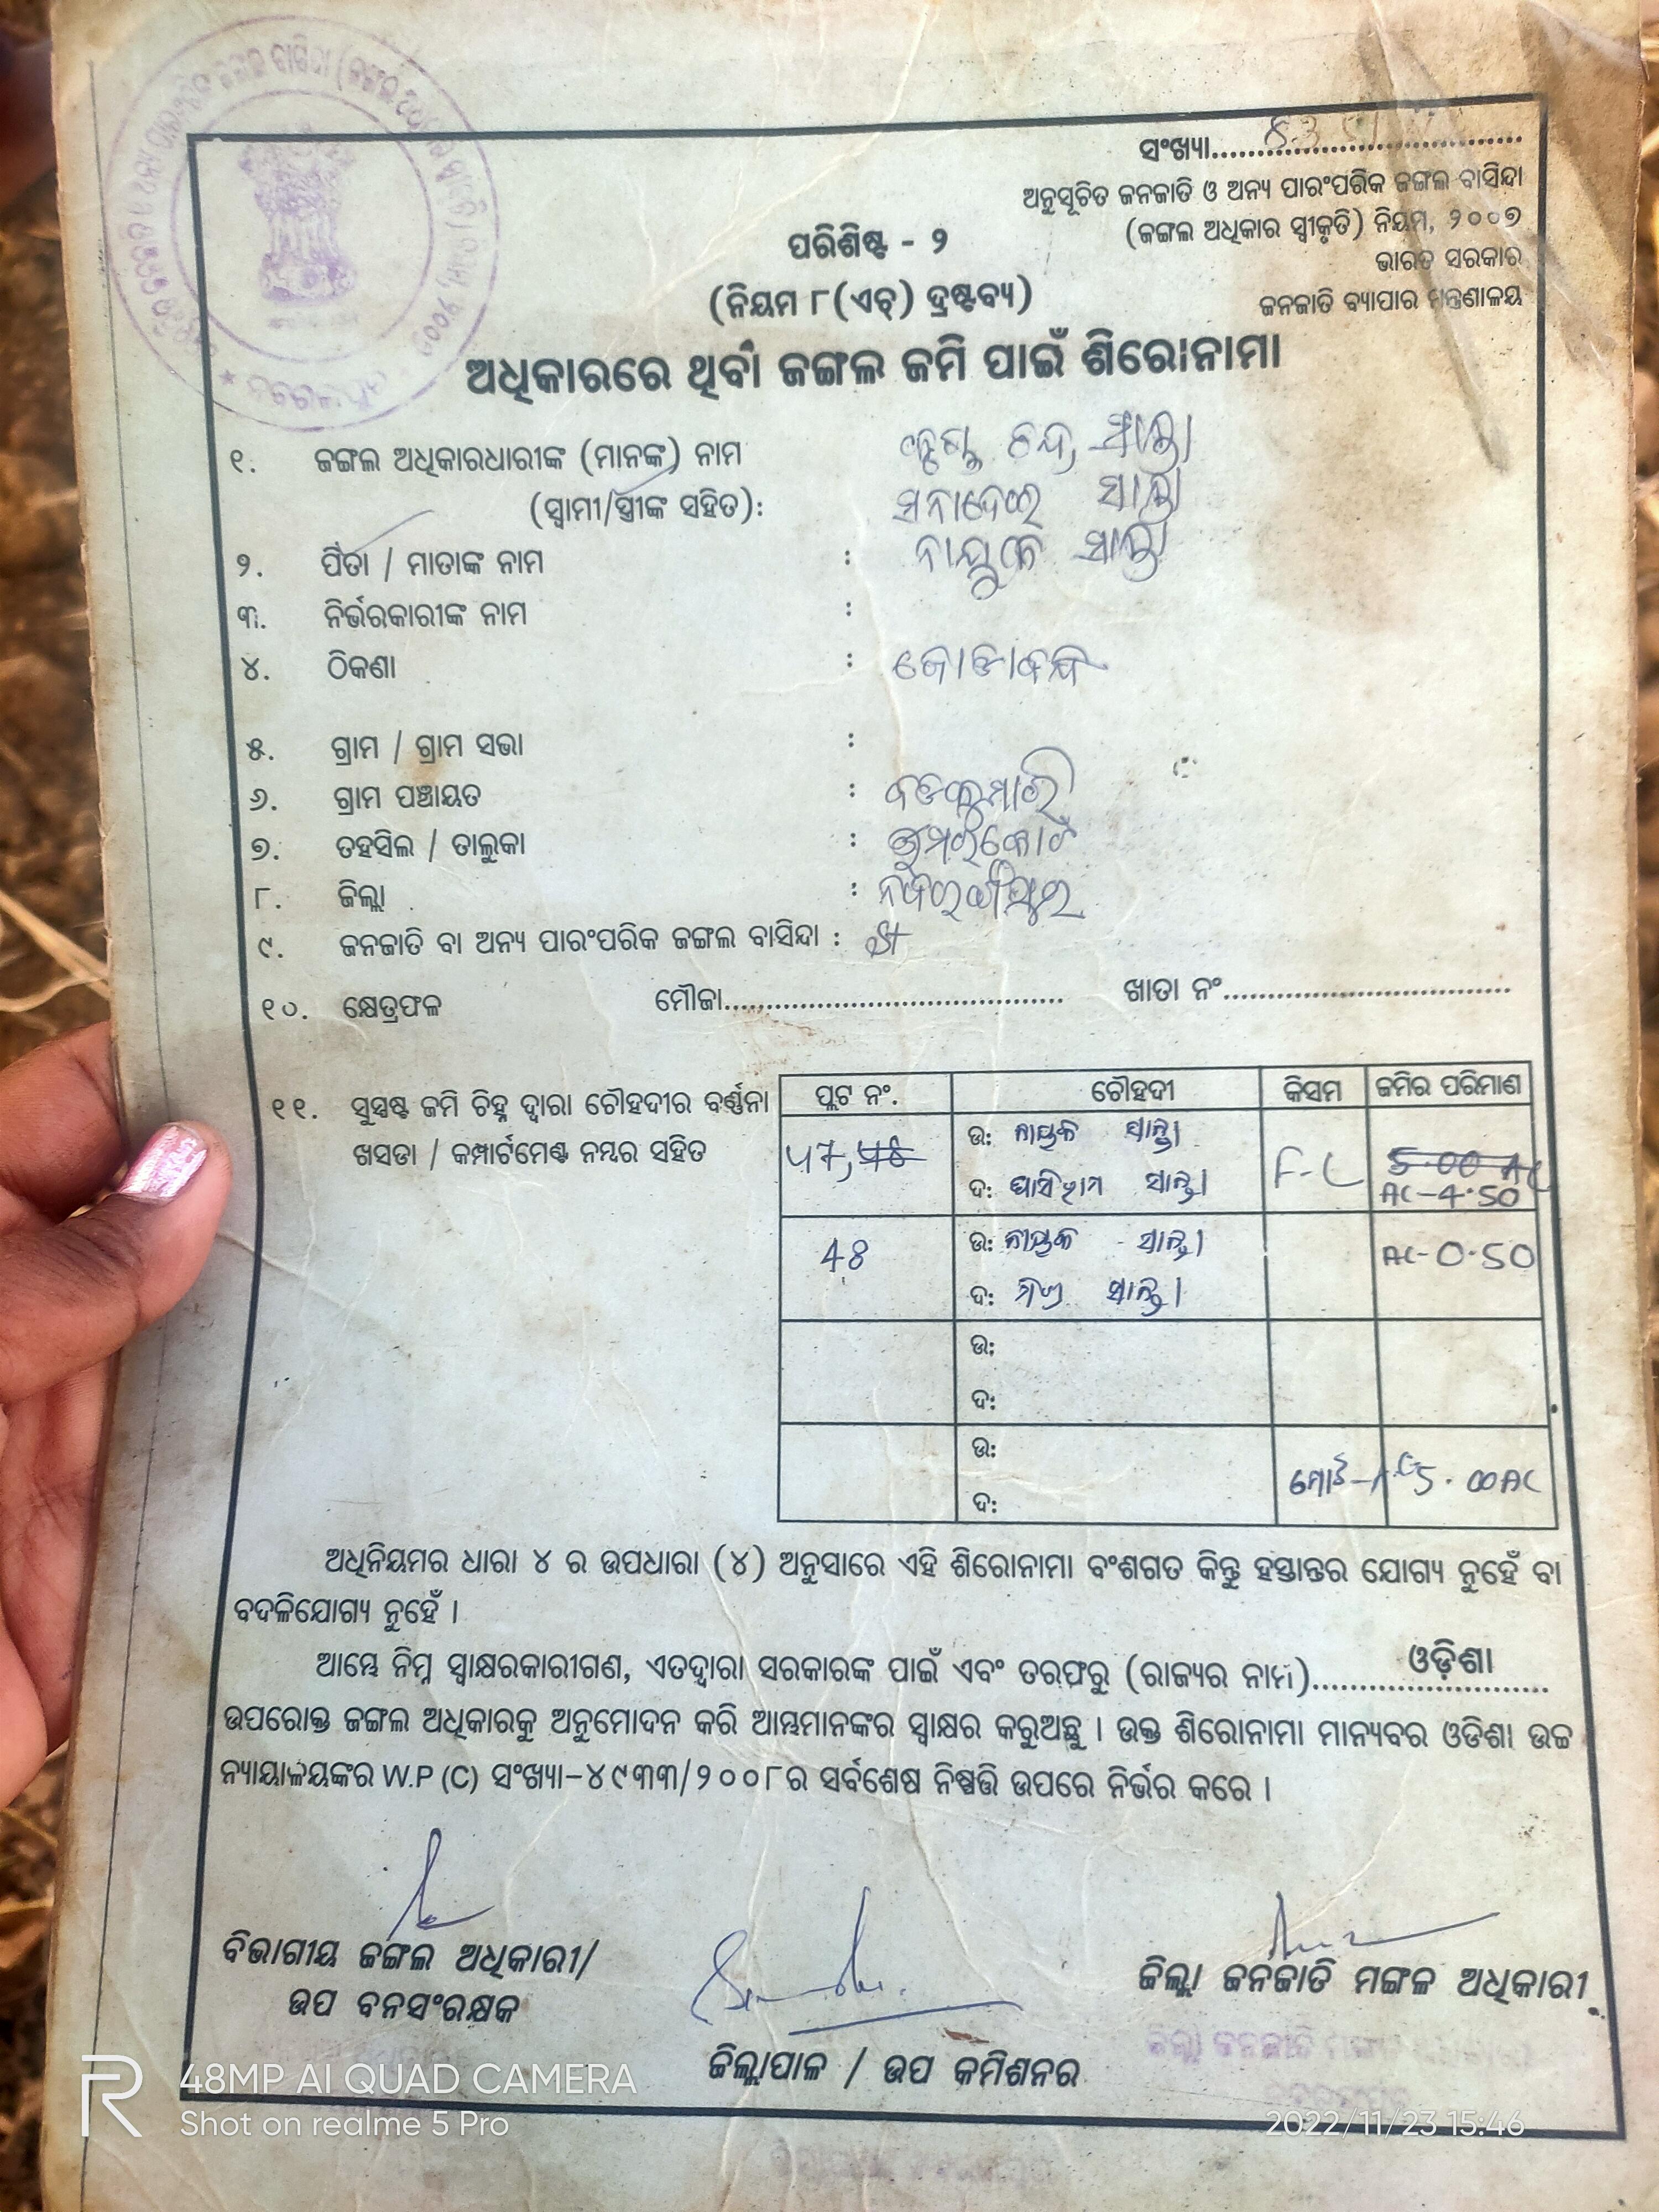 ସଂଖ୍ୟା..................................
ଅନୁସୂଚିତ ଜନଜାତି ଓ ଅନ୍ୟ ପାରଂପରିକ ଜଙ୍ଗଲ ବାସିନ୍ଦା
(ଜଙ୍ଗଲ ଅଧିକାର ସ୍ୱୀକୃତି) ନିୟମ, ୨୦୦୭
ଭାରତ ସରକାର
ଜନଜାତି ବ୍ୟାପାର ମନ୍ତ୍ରଣାଳୟ
ପରିଶିଷ୍ଟ - ୨
(ନିୟମ ୮(ଏଚ୍) ଦ୍ରଷ୍ଟବ୍ୟ)
ଅଧିକାରରେ ଥିବା ଜଙ୍ଗଲ ଜମି ପାଇଁ ଶିରୋନାମା
୧. ଜଙ୍ଗଲ ଅଧିକାରଧାରୀଙ୍କ (ମାନଙ୍କ) ନାମ ଚନ୍ଦ୍ର ସାନ୍ତା
(ସ୍ୱାମୀ/ସ୍ତ୍ରୀଙ୍କ ସହିତ): ସାନ୍ତା
୨. ପିତା / ମାତାଙ୍କ ନାମ : ସାନ୍ତା
୩. ନିର୍ଭରକାରୀଙ୍କ ନାମ :
୪. ଠିକଣା :
୫. ଗ୍ରାମ / ଗ୍ରାମ ସଭା :
୬. ଗ୍ରାମ ପଞ୍ଚାୟତ : ବଡକୁମାରି
୭. ତହସିଲ / ତାଲୁକା : ଉମରକୋଟ
୮. ଜିଲ୍ଲା : ନବରଙ୍ଗପୁର
୯. ଜନଜାତି ବା ଅନ୍ୟ ପାରଂପରିକ ଜଙ୍ଗଲ ବାସିନ୍ଦା :
୧୦. କ୍ଷେତ୍ରଫଳ ମୌଜା..................................... ଖାତା ନଂ................................
୧୧. ସୁସ୍ପଷ୍ଟ ଜମି ଚିହ୍ନ ଦ୍ୱାରା ଚୌହଦୀର ବର୍ଣ୍ଣନା
ଖସଡା / କମ୍ପାର୍ଟମେଣ୍ଟ ନମ୍ବର ସହିତ
ପ୍ଲଟ ନଂ. ଚୌହଦୀ କିସମ ଜମିର ପରିମାଣ
ଉ: ନାୟକ ସାନ୍ତା 5.00 AC
ଦ: ସାନ୍ତା AC-4.50
48 ଉ: ନାୟକ ସାନ୍ତା AC-0.50
ଦ: ସାନ୍ତା
ଉ:
ଦ:
ଉ:
ଦ: ମୋଟ 5.00 AC
ଅଧିନିୟମର ଧାରା ୪ ର ଉପଧାରା (୪) ଅନୁସାରେ ଏହି ଶିରୋନାମା ବଂଶଗତ କିନ୍ତୁ ହସ୍ତାନ୍ତର ଯୋଗ୍ୟ ନୁହେଁ ବା
ବଦଳିଯୋଗ୍ୟ ନୁହେଁ ।
ଆମ୍ଭେ ନିମ୍ନ ସ୍ୱାକ୍ଷରକାରୀଗଣ, ଏତଦ୍ୱାରା ସରକାରଙ୍କ ପାଇଁ ଏବଂ ତରଫରୁ (ରାଜ୍ୟର ନାମ)......ଓଡ଼ିଶା......
ଉପରୋକ୍ତ ଜଙ୍ଗଲ ଅଧିକାରକୁ ଅନୁମୋଦନ କରି ଆମ୍ଭମାନଙ୍କର ସ୍ୱାକ୍ଷର କରୁଅଛୁ । ଉକ୍ତ ଶିରୋନାମା ମାନ୍ୟବର ଓଡିଶା ଉଚ୍ଚ
ନ୍ୟାୟାଳୟଙ୍କର W.P (C) ସଂଖ୍ୟା-୪୯୩୩/୨୦୦୮ର ସର୍ବଶେଷ ନିଷ୍ପତ୍ତି ଉପରେ ନିର୍ଭର କରେ ।
ବିଭାଗୀୟ ଜଙ୍ଗଲ ଅଧିକାରୀ/
ଉପ ବନସଂରକ୍ଷକ
ଜିଲ୍ଲାପାଳ / ଉପ କମିଶନର
ଜିଲ୍ଲା ଜନଜାତି ମଙ୍ଗଳ ଅଧିକାରୀ
48MP AI QUAD CAMERA
Shot on realme 5 Pro
2022/11/23 15:46